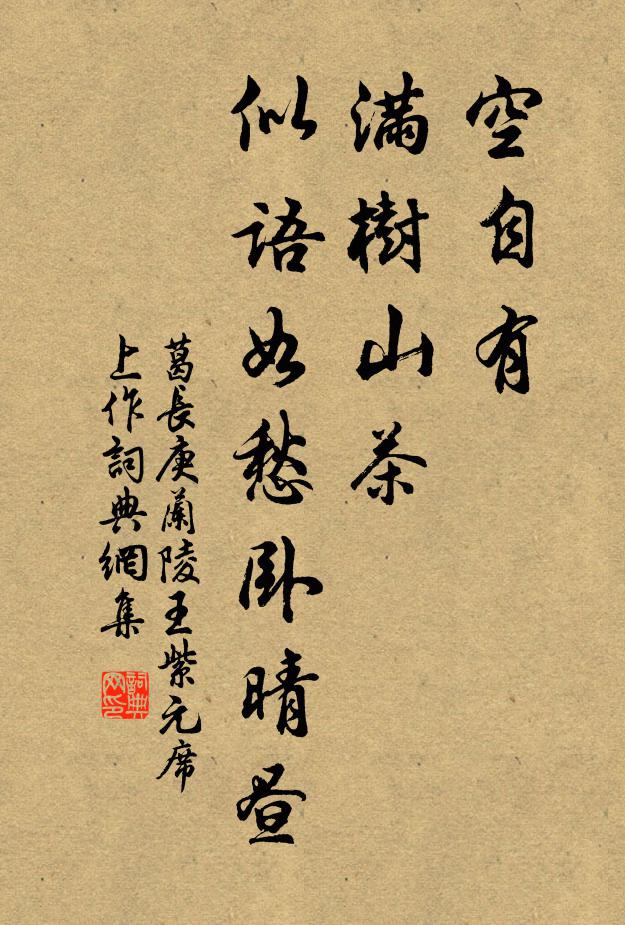 空自有
滿樹山茶
似語如愁臥晴昼
葛長庚蘭陵王紫元席
上作詞典網集
詞典
网印